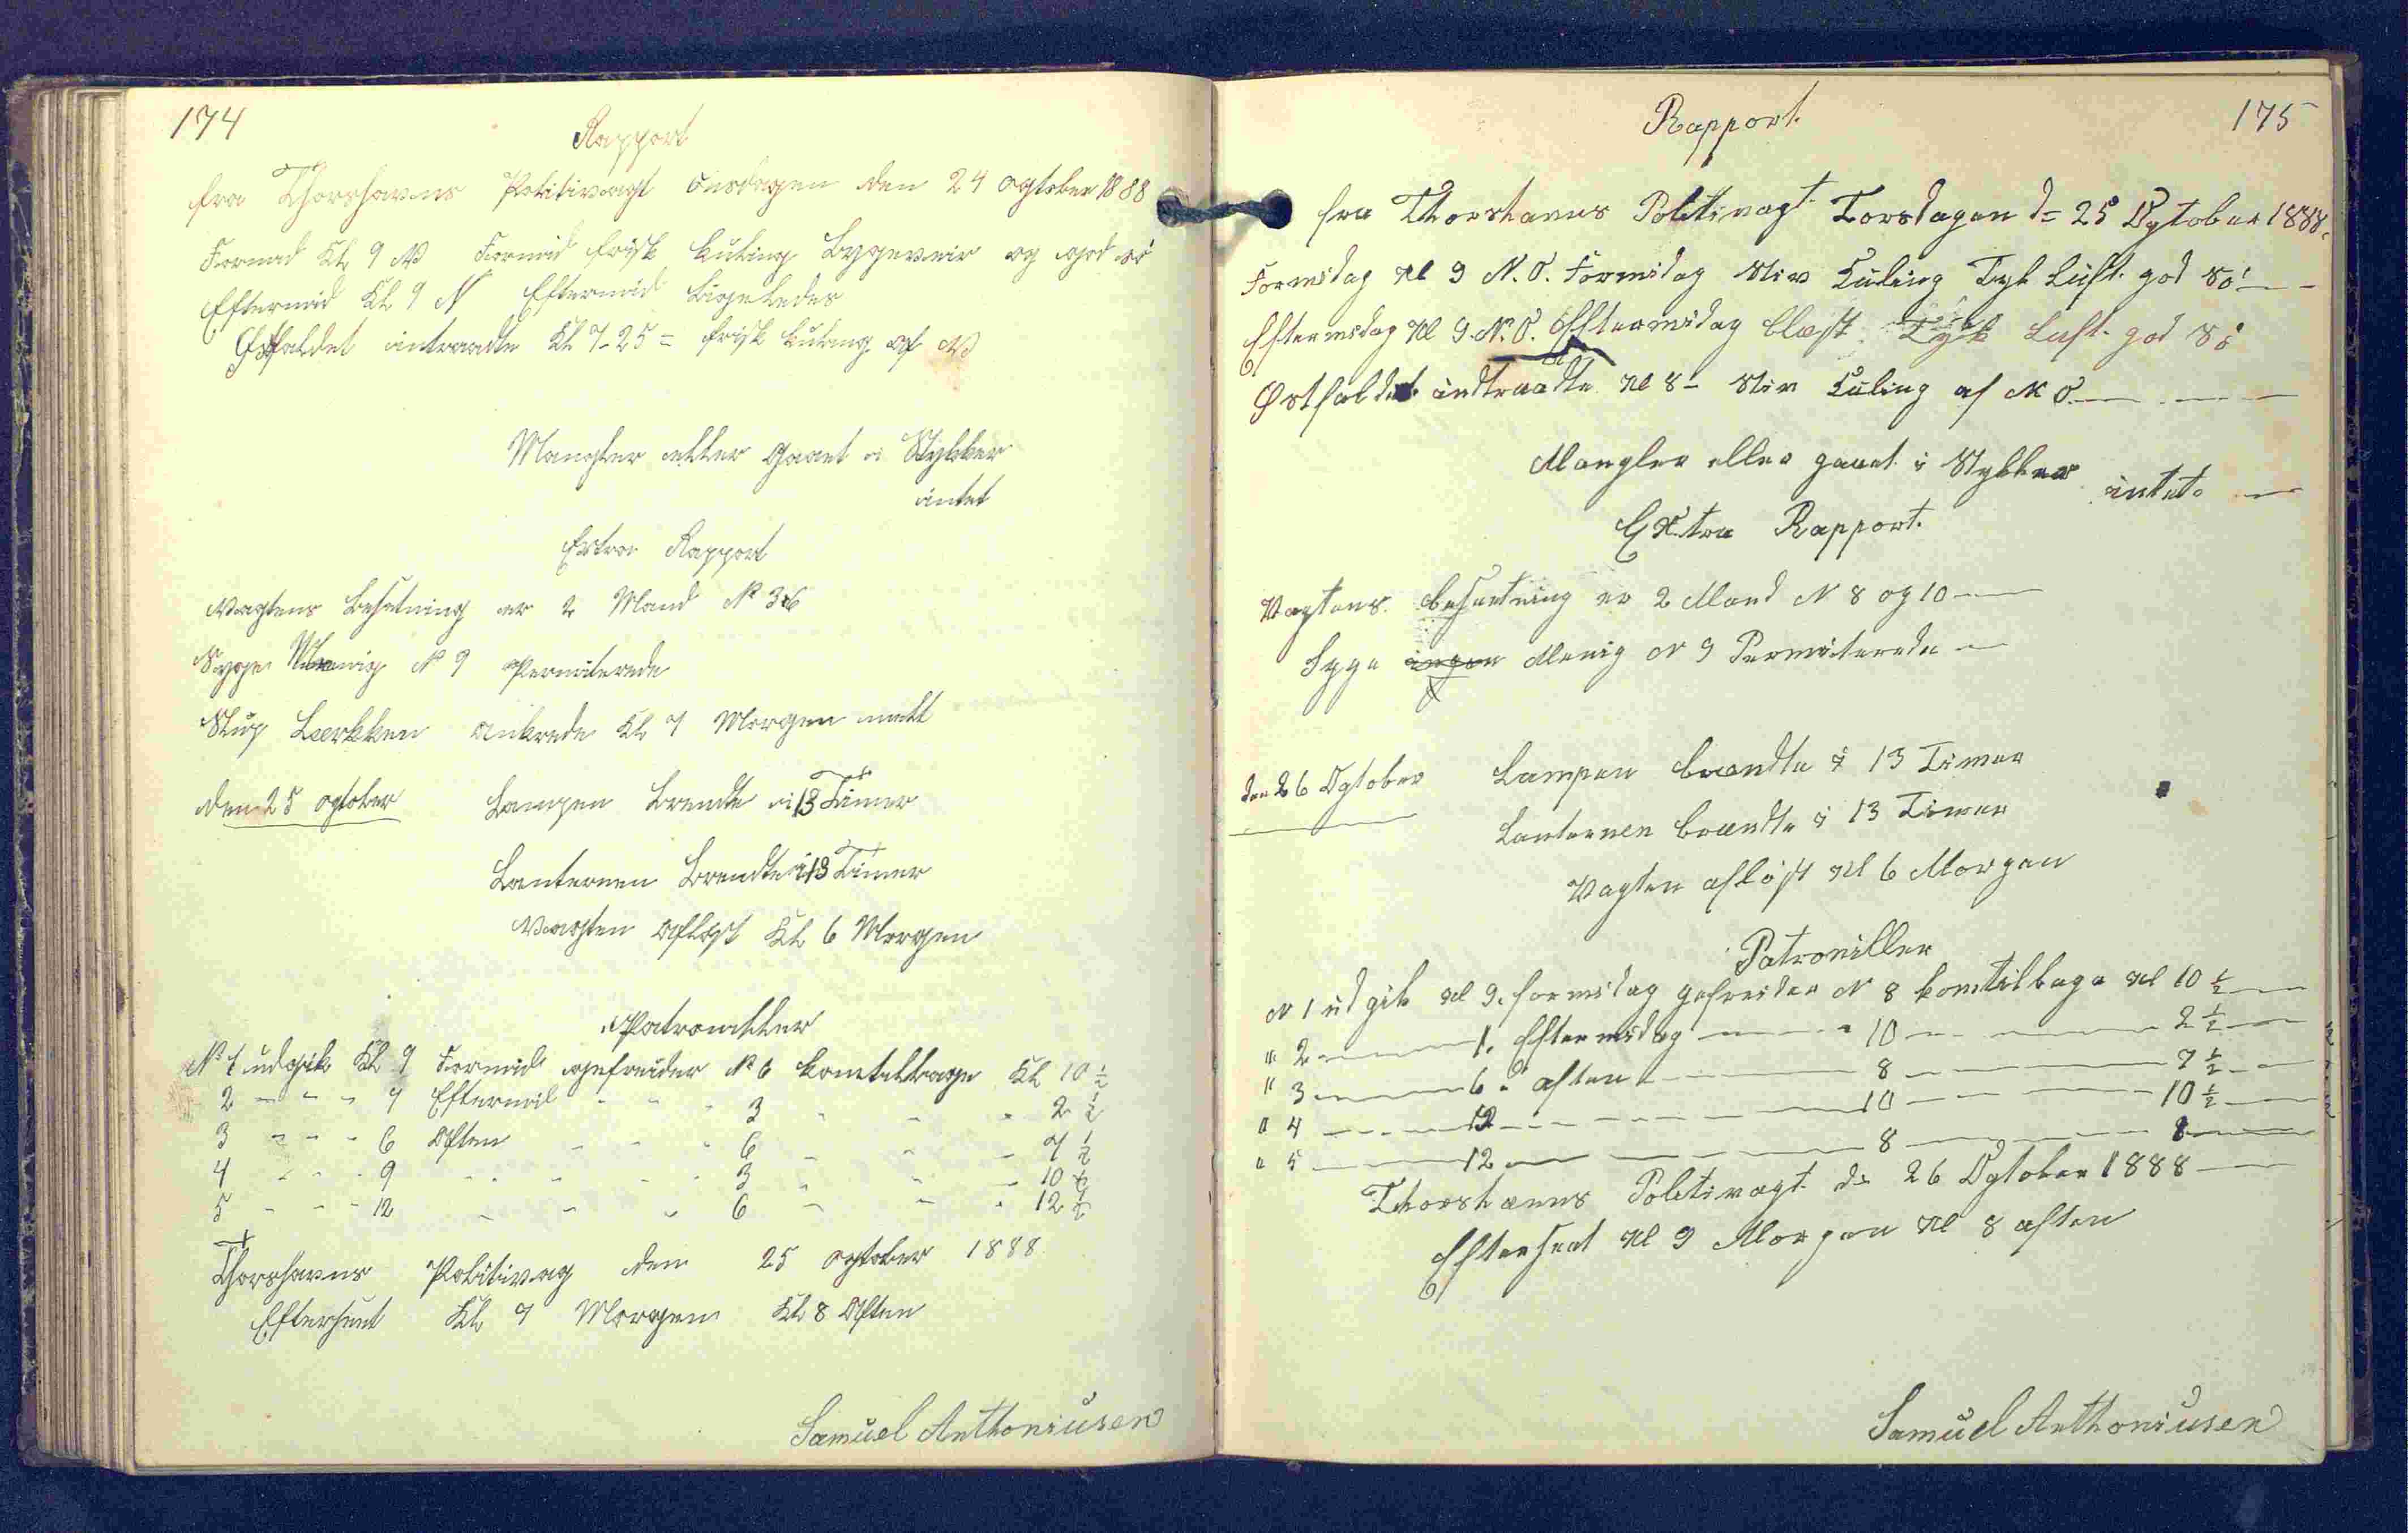 174
Rapport
fra Thorshavns Politivagt onsdagen den 24 ogtober 1888
Formid Kl 9 NV Formid frisk kuling Bygeveir og god sö
Eftermid Kl 9 N Eftermid ligeledes
Østfaldet intraadte Kl 7-25 = frisk kuling af NV
Mangler eller gaaet i Stykker
intet
Extra Rapport
Vagtens Besetning er 2 Mand No 3 6
Syge Menig No 9 Permiterede
Slup Lærkken ankrede Kl 7 Morgen
den 25 ogtober Lampen brendte i 13 Timer
Lanternen brendte i 13 Timer
Vagten Afløst Kl 6 Morgen
Patroniller
No 1 udgik Kl 9 Formid gefreider No 6 komtilbage Kl 10 ½
2 - - - 7 Eftermid - - - 3 - - - 2 ½
3 - - - 6 Aften - - - 6 - - - 7 ½
4 - - - 9 - - - - - 3 - - - 10 ½
5 - - - 12 - - - 6 - - - 12 ½
Thorshavns Politivag den 25 ogtober 1888
Efterseet Kl 7 Morgen Kl 8 Aften
Samuel Anthoniusen
Rapport. 175
fra Thorshavns Politivagt Torsdagen d= 25 Ogtober 1888.
Formidag Kl 9 N.O. Formidag Stiv Kuling Tyk Luft. god Sö
Eftermidag Kl 9. N.O. Eftermidag blæst Tyk Luft. god Sö
Østfaldet indtraadte Kl 8- Stiv Kuling af NO.
Mangler eller gaaet i Stykker intet.
Extra Rapport.
Vagtens. besætning er 2 Mand N 8 og 10
Syge ingen Menig N 9 Permiterede
den 26 Ogtober Lampen brændte i 13 Timer
Lanternen brændte i 13 Timer
Vagten afløst Kl 6 Morgen
Patroniller
N 1 udgik Kl 9. formidag gefreider N 8 komtilbage Kl 10 ½
" 2 - 1. Eftermidag - 10 - 2 ½
" 3 - 6 " aften - 8 - 7 ½
" 4 - - 10 - 10 ½
" 5 - 12 - 8 - 8
Thorshavns Politivagt d= 26 Ogtober 1888
Efterseet Kl 9 Morgen Kl 8 aften
Samuel Anthoniusen